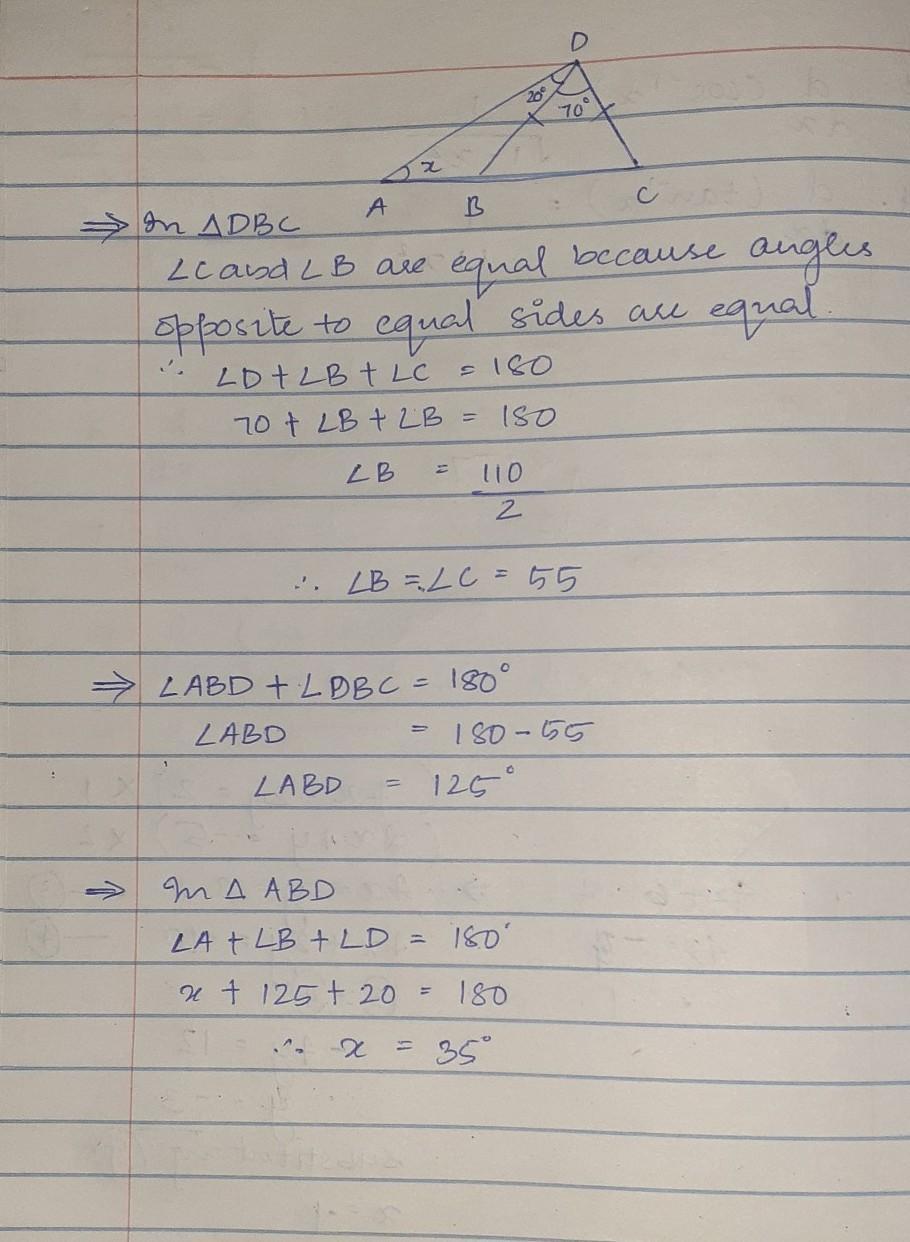 D
20° 70°
x
A B C
⇒ In △DBC
∠C and ∠B are equal because angles
opposite to equal sides are equal.
∴ ∠D + ∠B + ∠C = 180
70 + ∠B + ∠B = 180
∠B = 110
2
∴ ∠B = ∠C = 55
⇒ ∠ABD + ∠DBC = 180°
∠ABD = 180 - 55
∠ABD = 125°
⇒ In △ ABD
∠A + ∠B + ∠D = 180°
x + 125 + 20 = 180
∴ x = 35°